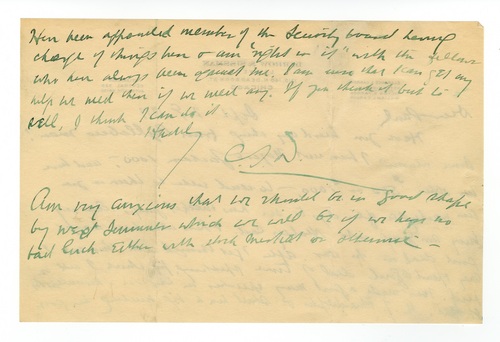 Have been appointed member of the Security board having
charge of things here & am "right in it" with the fellows
who have always been against me. I am sure that I can get any
help we need then if we need any. If you think it best to
sell, I think I can do it
Hastily
C.S.D.
Am very anxious that we should be in good shape
by next Summer which we will be if we have no
bad luck. Either with stock market or otherwise —